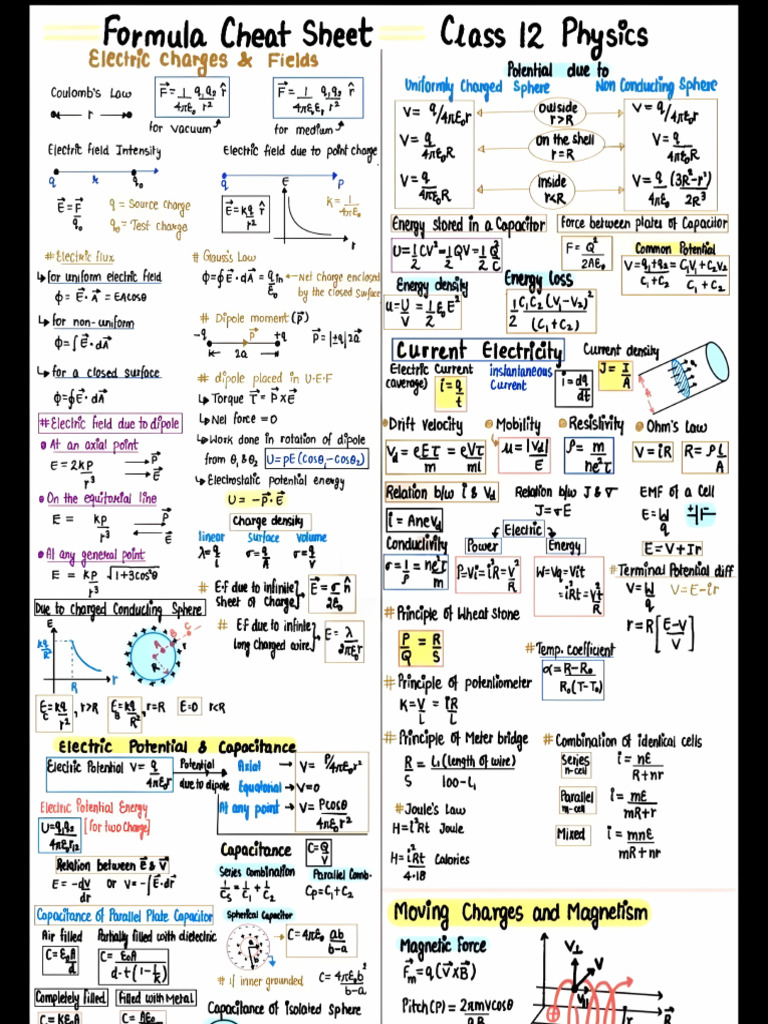 Formula Cheat Sheet
Class 12 Physics
Electric Charges & Fields
Coulomb's Law
F⃗ = 1/4πε₀ q₁q₂/r² r̂
F⃗ = 1/4πε₀εᵣ q₁q₂/r² r̂
r
for vacuum
for medium
Electric field Intensity
Electric field due to point charge
q
q₀
q
P
E⃗ = F⃗/q₀
q = Source charge
q₀ = Test charge
E⃗ = kq/r² r̂
E
r
k = 1/4πε₀
# Electric flux
↳ for uniform electric field
ϕ = E⃗ · A⃗ = EAcosθ
↳ for non-uniform
ϕ = ∫E⃗ · dA⃗
↳ for a closed surface
ϕ = ∮E⃗ · dA⃗
# Gauss's Law
ϕ = ∮E⃗ · dA⃗ = qin/ε₀ ← Net charge enclosed
by the closed surface
# Dipole moment (p⃗)
-q
P⃗
+q
2a
P⃗ = |±q|2a⃗
# dipole placed in U·E·F
↳ Torque τ⃗ = P⃗ x E⃗
↳ Net force = 0
↳ Work done in rotation of dipole
from θ₁ & θ₂ U = pE (Cosθ₁ - Cosθ₂)
↳ Electrostatic potential energy
U = -P⃗ · E⃗
# Electric field due to dipole
At an axial point
E = 2kp/r³
P⃗
E⃗
On the equitorial line
E = kp/r³
P⃗
E⃗
At any general point
E = kp/r³ √1+3cos²θ
Charge density
linear surface volume
λ = q/l σ = q/A σ = q/V
# E·f due to infinite sheet of Charge
E⃗ = σ/2ε₀ n̂
# E·f due to infinite long charged wire
E = λ/2πε₀r
Due to Charged Conducting Sphere
E
kq/R²
R
r
E = kq/r², r>R
E = kq/R², r=R
E=0 r<R
Electric Potential & Capacitance
Electric Potential V = q/4πε₀r
Potential
due to dipole
Axial → V = P/4πε₀r²
Equatorial → V=0
At any point → V = Pcosθ/4πε₀r²
Electric Potential Energy
U = q₁q₂/4πε₀r₁₂ [for two Charge]
Relation between E⃗ & V⃗
E = -dV/dr or V = -∫E⃗·dr⃗
Capacitance
C = Q/V
Series Combination
1/Cs = 1/C₁ + 1/C₂
Parallel Comb·
Cp = C₁+C₂
Capacitance of Parallel Plate Capacitor
Air filled
C = ε₀A/d
Partially filled with dielectric
C = ε₀A/d-t(1-1/k)
Spherical Capacitor
C = 4πε₀ ab/b-a
# if inner grounded
C = 4πε₀b²/b-a
Completely filled
C = KE₀A
Filled with Metal
C = AE₀
Capacitance of Isolated Sphere
Potential due to
Uniformly Charged Sphere
Non Conducting Sphere
V = q/4πε₀r
Outside r>R
V = q/4πε₀r
V = q/4πε₀R
On the shell r=R
V = q/4πε₀R
V = q/4πε₀R
Inside r<R
V = q/4πε₀ (3R²-r²)/2R³
Energy stored in a Capacitor
U = 1/2 CV² = 1/2 QV = 1/2 Q²/C
Force between plates of Capacitor
F = Q²/2AE₀
Common Potential
V = q₁+q₂/C₁+C₂ = C₁V₁+C₂V₂/C₁+C₂
Energy density
u = U/V = 1/2 ε₀E²
Energy loss
1/2 C₁C₂(V₁-V₂)²/(C₁+C₂)
Current Electricity
Electric Current
(average)
i = q/t
instantaneous
Current
i = dq/dt
Current density
J = I/A
Drift Velocity
Vd = eEτ/m = eVτ/ml
Mobility
μ = |Vd|/E
Resistivity
ρ = m/ne²τ
Ohm's Law
V = iR
R = ρL/A
Relation b/w i & Vd
i = AneVd
Relation b/w J & σ
J = σE
EMF of a Cell
E = W/q
E = V+Ir
Conductivity
σ = 1/ρ = ne²τ/m
Electric
Power
P=Vi=i²R=V²/R
Energy
W=Vq=Vit
=i²Rt=V²t/R
# Terminal Potential diff
V = W/q
V = E-ir
r = R[E-V/V]
# Principle of Wheat Stone
P/Q = R/S
# Temp. coefficient
α = R-R₀/R₀(T-T₀)
# Principle of potentiometer
K = V/L = iR/L
# Principle of Meter bridge
R/S = L₁(length of wire)/100-L₁
# Combination of identical cells
Series n-cell
i = nE/R+nr
Parallel m-cell
i = mE/mR+r
Mixed
i = mnE/mR+nr
# Joule's Law
H = i²Rt Joule
H = i²Rt/4·18 Calories
Moving Charges and Magnetism
Magnetic Force
F⃗m = q(V⃗xB⃗)
Pitch(P) = 2πmvcosθ/qB
V⊥
V
V∥
r
B⃗